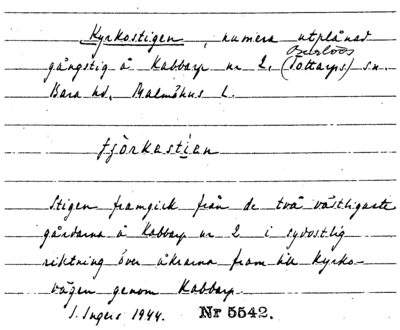 Kyrkostigen, numera utplånad
Burlövs
gångstig å Kabbarp nr 2, (Tottarps) sn.
Bara hd, Malmöhus L.
fjòrkastian
Stigen framgick från de två västligaste
gårdarna å Kabbarp nr 2 i sydostlig
riktning över åkrarna fram till Kyrko-
vägen genom Kabbarp.
I. Ingers 1944. Nr 5542.